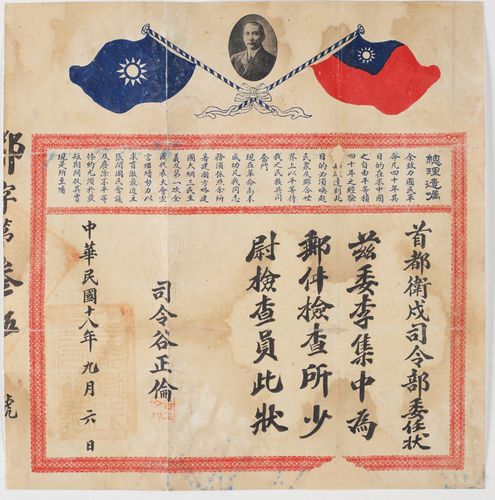 總理遺囑
余致力國民革
命凡四十年其
目的在求中國
之自由平等積
四十年之經驗
達到此
目的必須喚起
民眾及聯合世
界上以平等待
我之民族共同
奮鬥
現在革命尚未
成功凡我同志
務須依照余所
著建國方略建
國大綱三民主
義及第一次全
國代表大會宣
言繼續努力以
求貫澈最近主
張開國民會議
及廢除不平等
條約尤須於最
短期間促其實
現是所至囑
首都衛戍司令部委任狀
茲委李集中為
郵件檢查所少
尉檢查員此狀
司令谷正倫
中華民國十八年九月六日
郵字第叁伍號